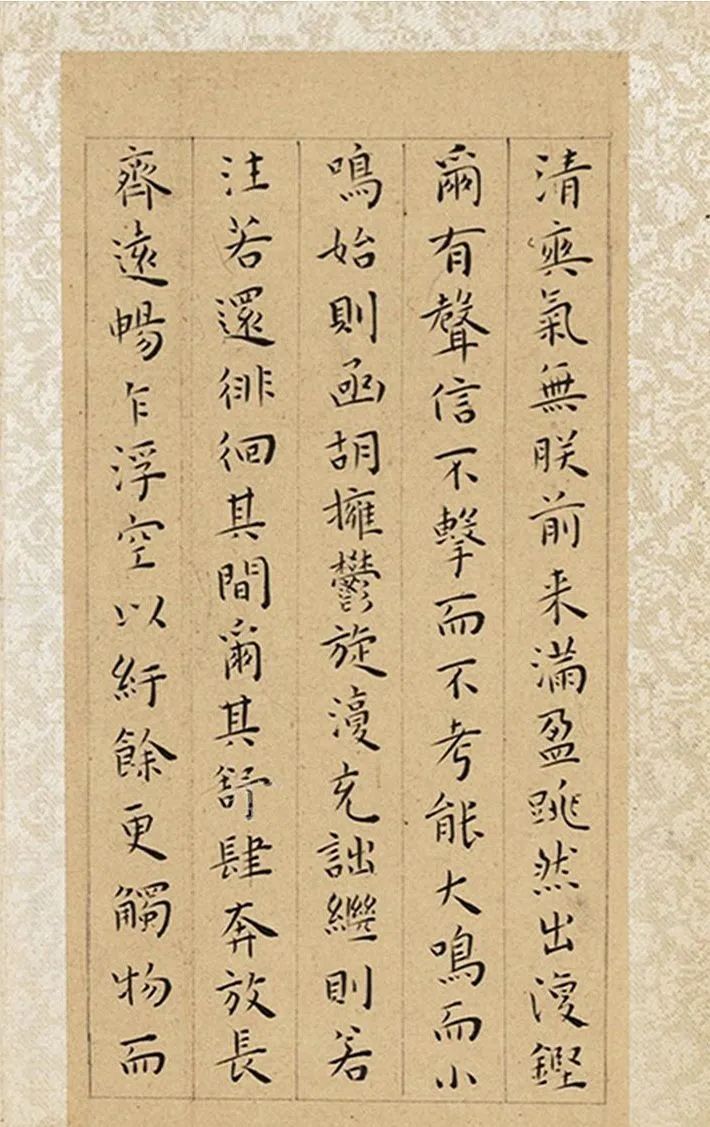 清爽氣無朕前来滿盈跳然出復鏗
爾有聲信不擊而不考能大鳴而小
鳴始則函胡擁鬱旋復充詘繼則若
注若還徘徊其間爾其舒肆奔放長
齊遠暢乍浮空以紆餘更觸物而